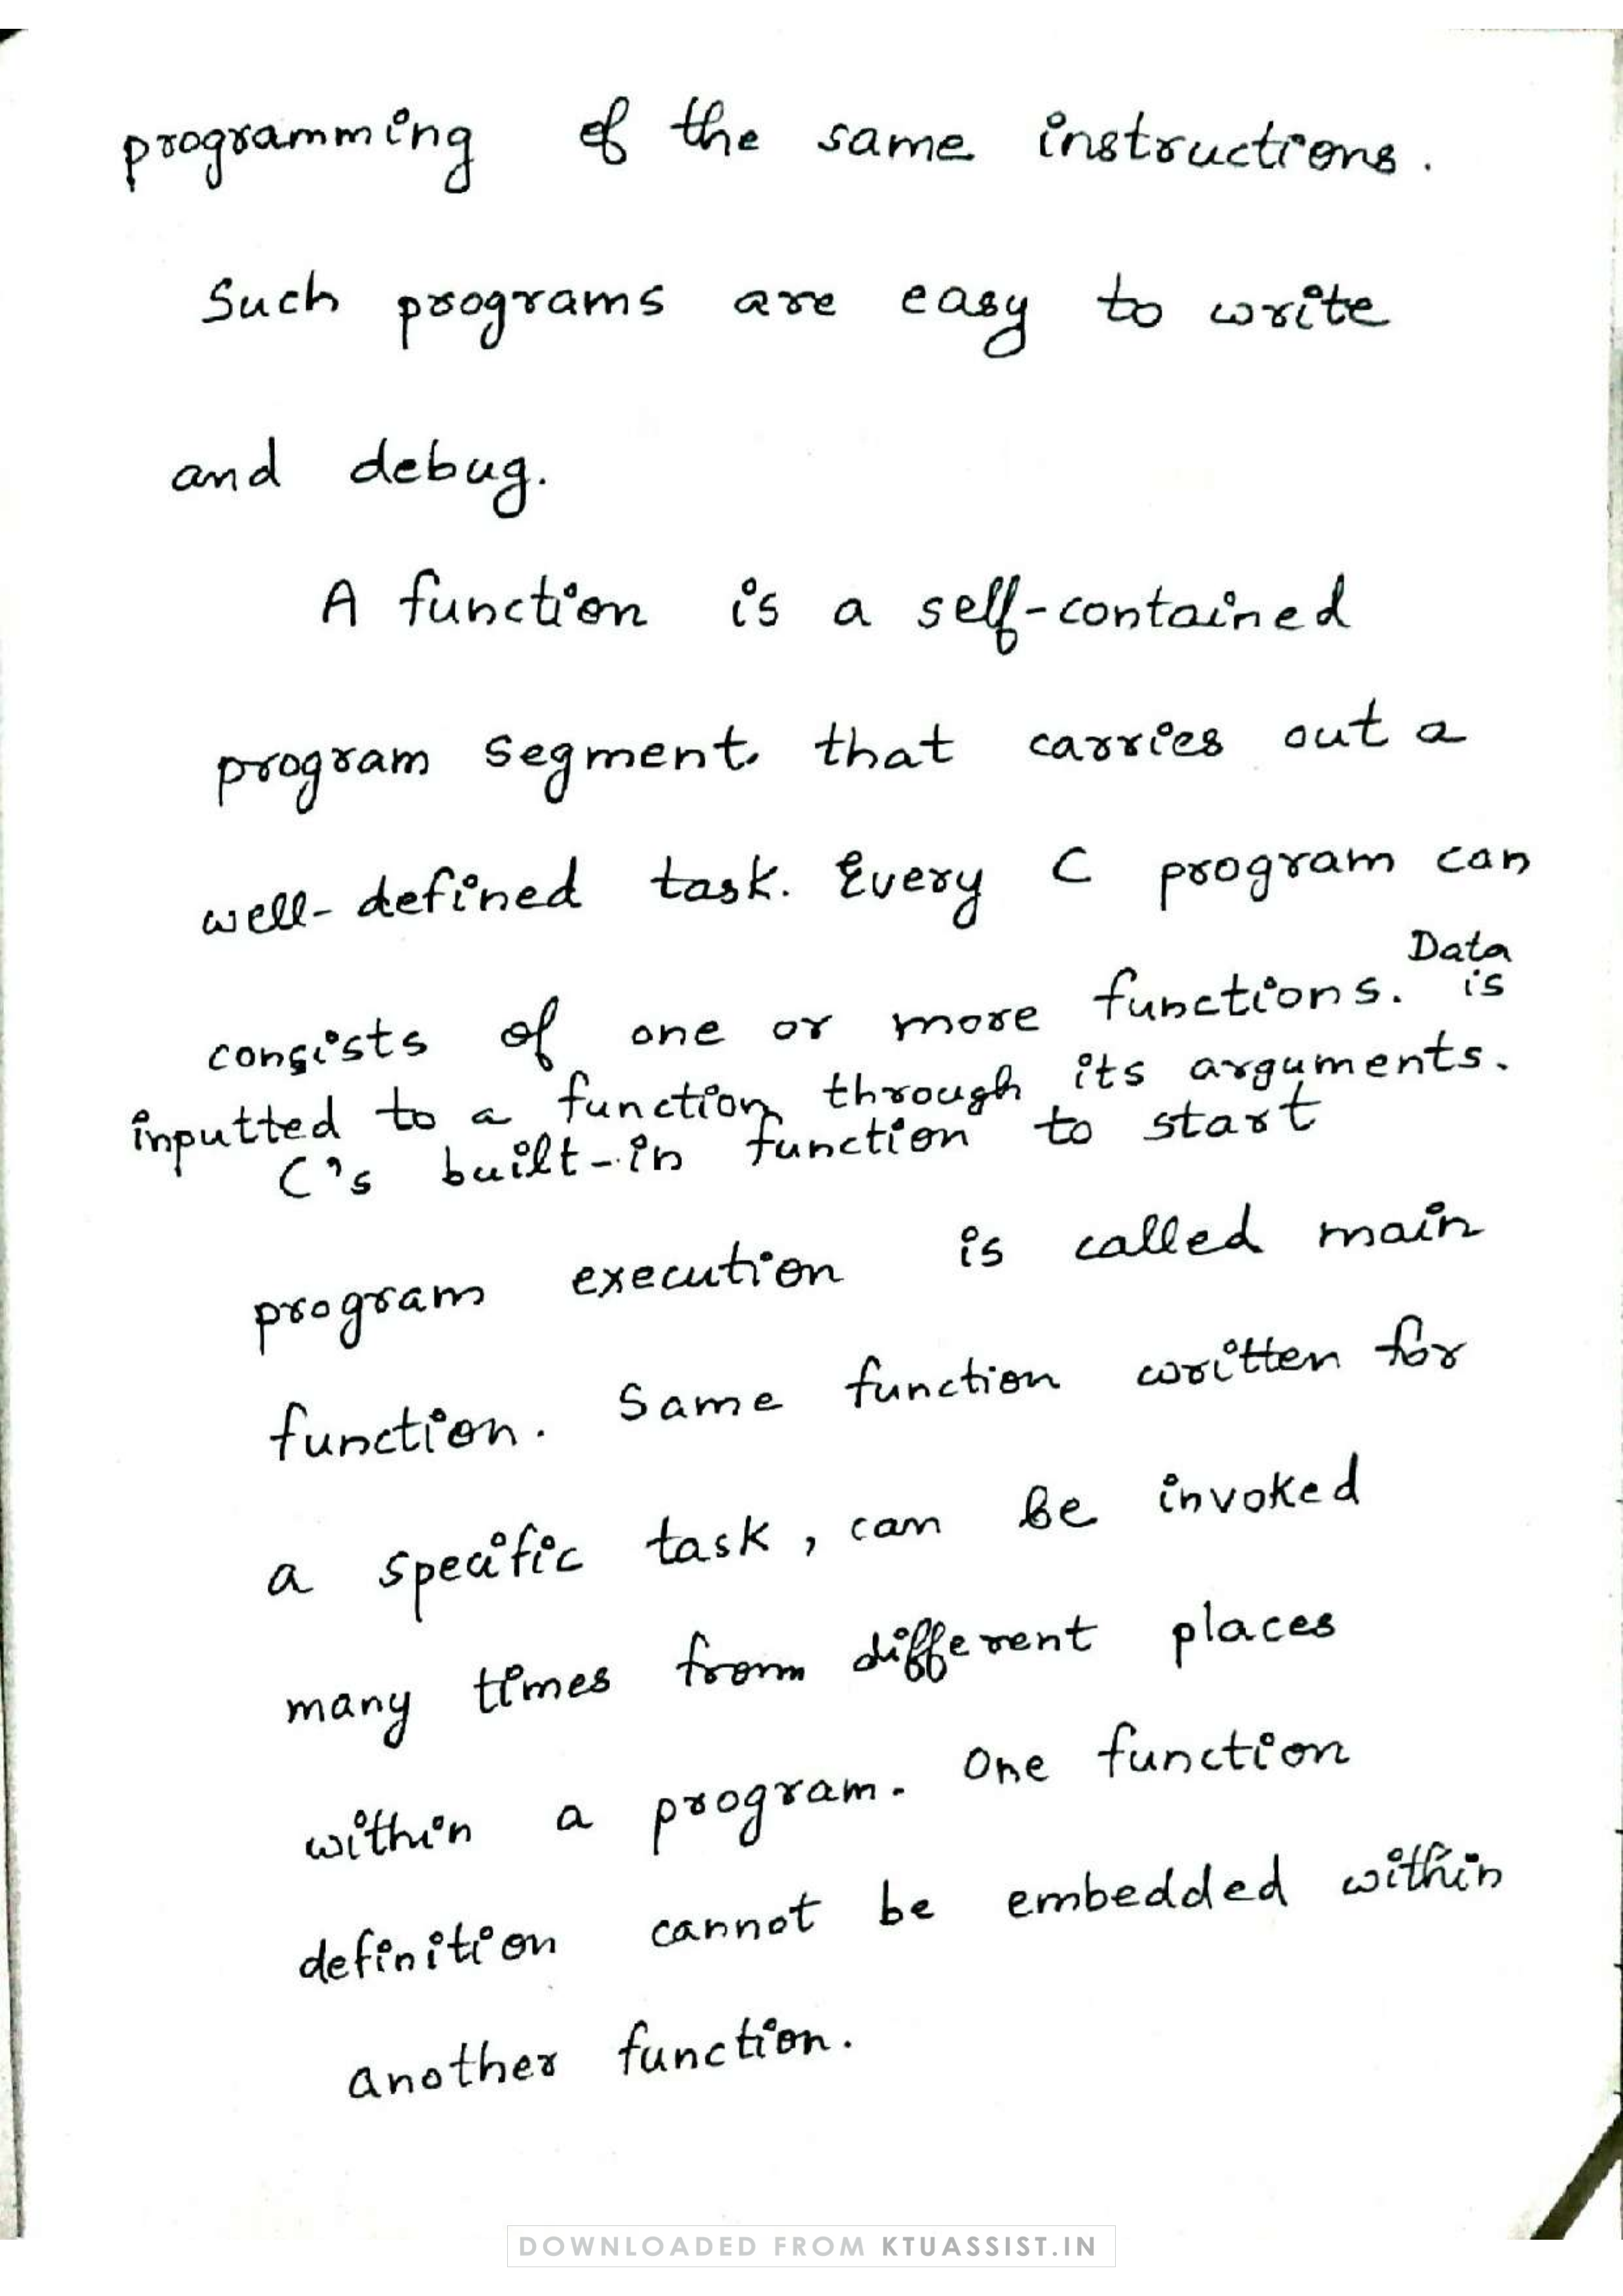 programming of the same instructions.
Such programs are easy to write
and debug.
A function is a self-contained
program segment that carries out a
well-defined task. Every C program can
consists of one or more functions. Data is
inputted to a function through its arguments.
C's built-in function to start
program execution is called main
function. Same function written for
a specific task, can be invoked
many times from different places
within a program. One function
definition cannot be embedded within
another function.
DOWNLOADED FROM KTUASSIST.IN